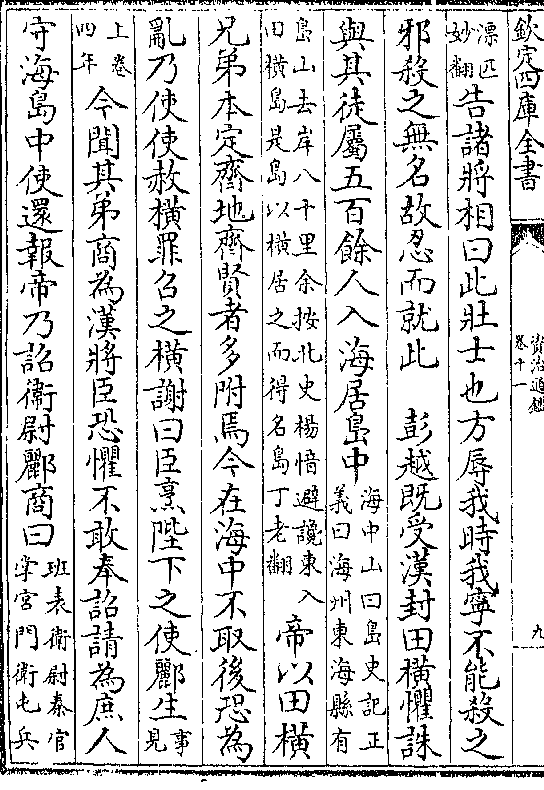 欽定四庫全書
資治通鑑
卷十一
九
漂匹
妙翻
告諸將相曰此壯士也方辱我時我寧不能殺之
邪殺之無名故忍而就此　彭越既受漢封田橫懼誅
與其徒屬五百餘人入海居島中
海中山曰島史記正
義曰海州東海縣有
島山去岸八十里余按北史楊愔避讒東入
田橫島是島以橫居之而得名島丁老翻
帝以田橫
兄弟本定齊地齊賢者多附焉今在海中不取後恐為
亂乃使使赦橫罪召之橫謝曰臣烹陛下之使酈生
事
見
上卷
四年
今聞其弟商為漢將臣恐懼不敢奉詔請為庶人
守海島中使還報帝乃詔衞尉酈商曰
班表衛尉秦官
掌宮門衛屯兵